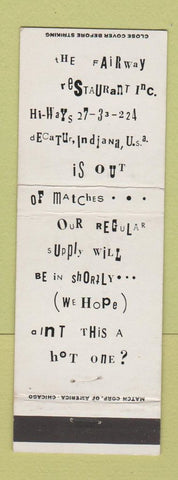 CLOSE COVER BEFORE STRIKING
tHE FAiRway
reSTAURANT INC.
Hi-WayS 27-33-224
dECATUr, Indiana, U.S.a.
iS OUT
OF MaTCHes • • •
OUR REGULAR
SUPPLY WILL
BE IN SHORTLY•••
(We HoPe)
aINT THIS A
HOT ONE?
MATCH CORP. OF AMERICA-CHICAGO